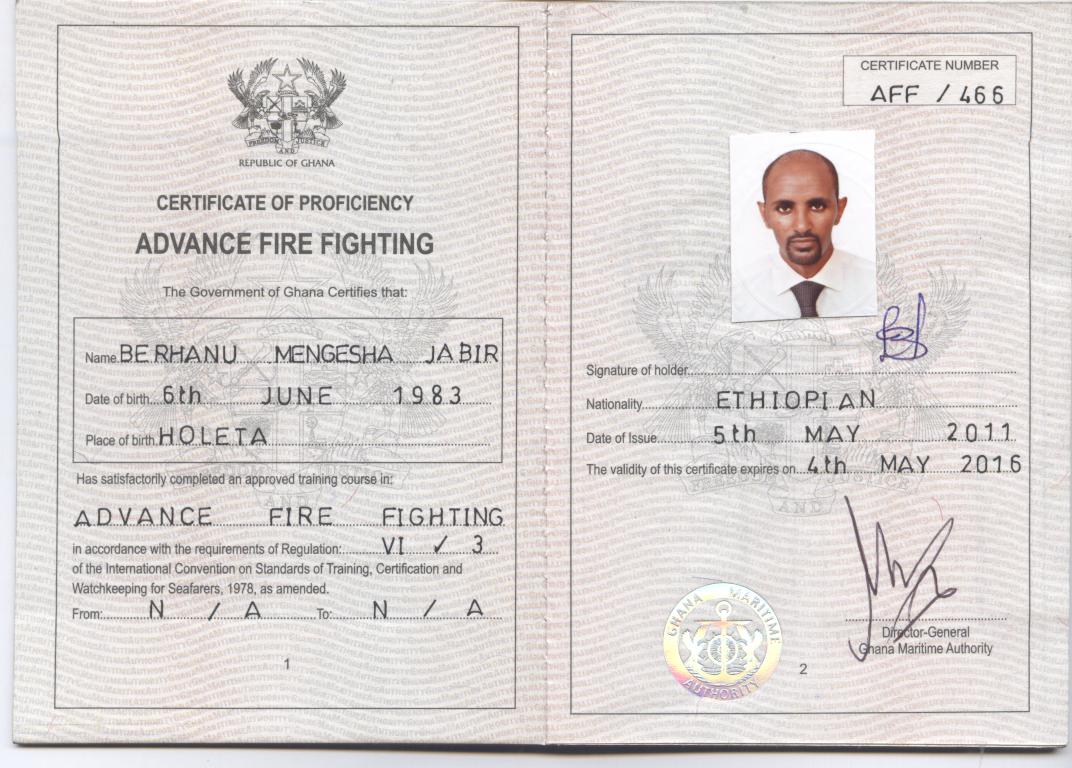 FREEDOM AND JUSTICE
REPUBLIC OF GHANA
CERTIFICATE OF PROFICIENCY
ADVANCE FIRE FIGHTING
The Government of Ghana Certifies that:
Name BERHANU MENGESHA JABIR
Date of birth 6th JUNE 1983
Place of birth HOLETA
Has satisfactorily completed an approved training course in:
ADVANCE FIRE FIGHTING
in accordance with the requirements of Regulation: VI / 3
of the International Convention on Standards of Training, Certification and
Watchkeeping for Seafarers, 1978, as amended.
From: N / A To: N / A
1
CERTIFICATE NUMBER
AFF / 466
Signature of holder
Nationality ETHIOPIAN
Date of Issue 5th MAY 2011
The validity of this certificate expires on 4th MAY 2016
FREEDOM AND JUSTICE
GHANA MARITIME AUTHORITY
Director-General
Ghana Maritime Authority
2